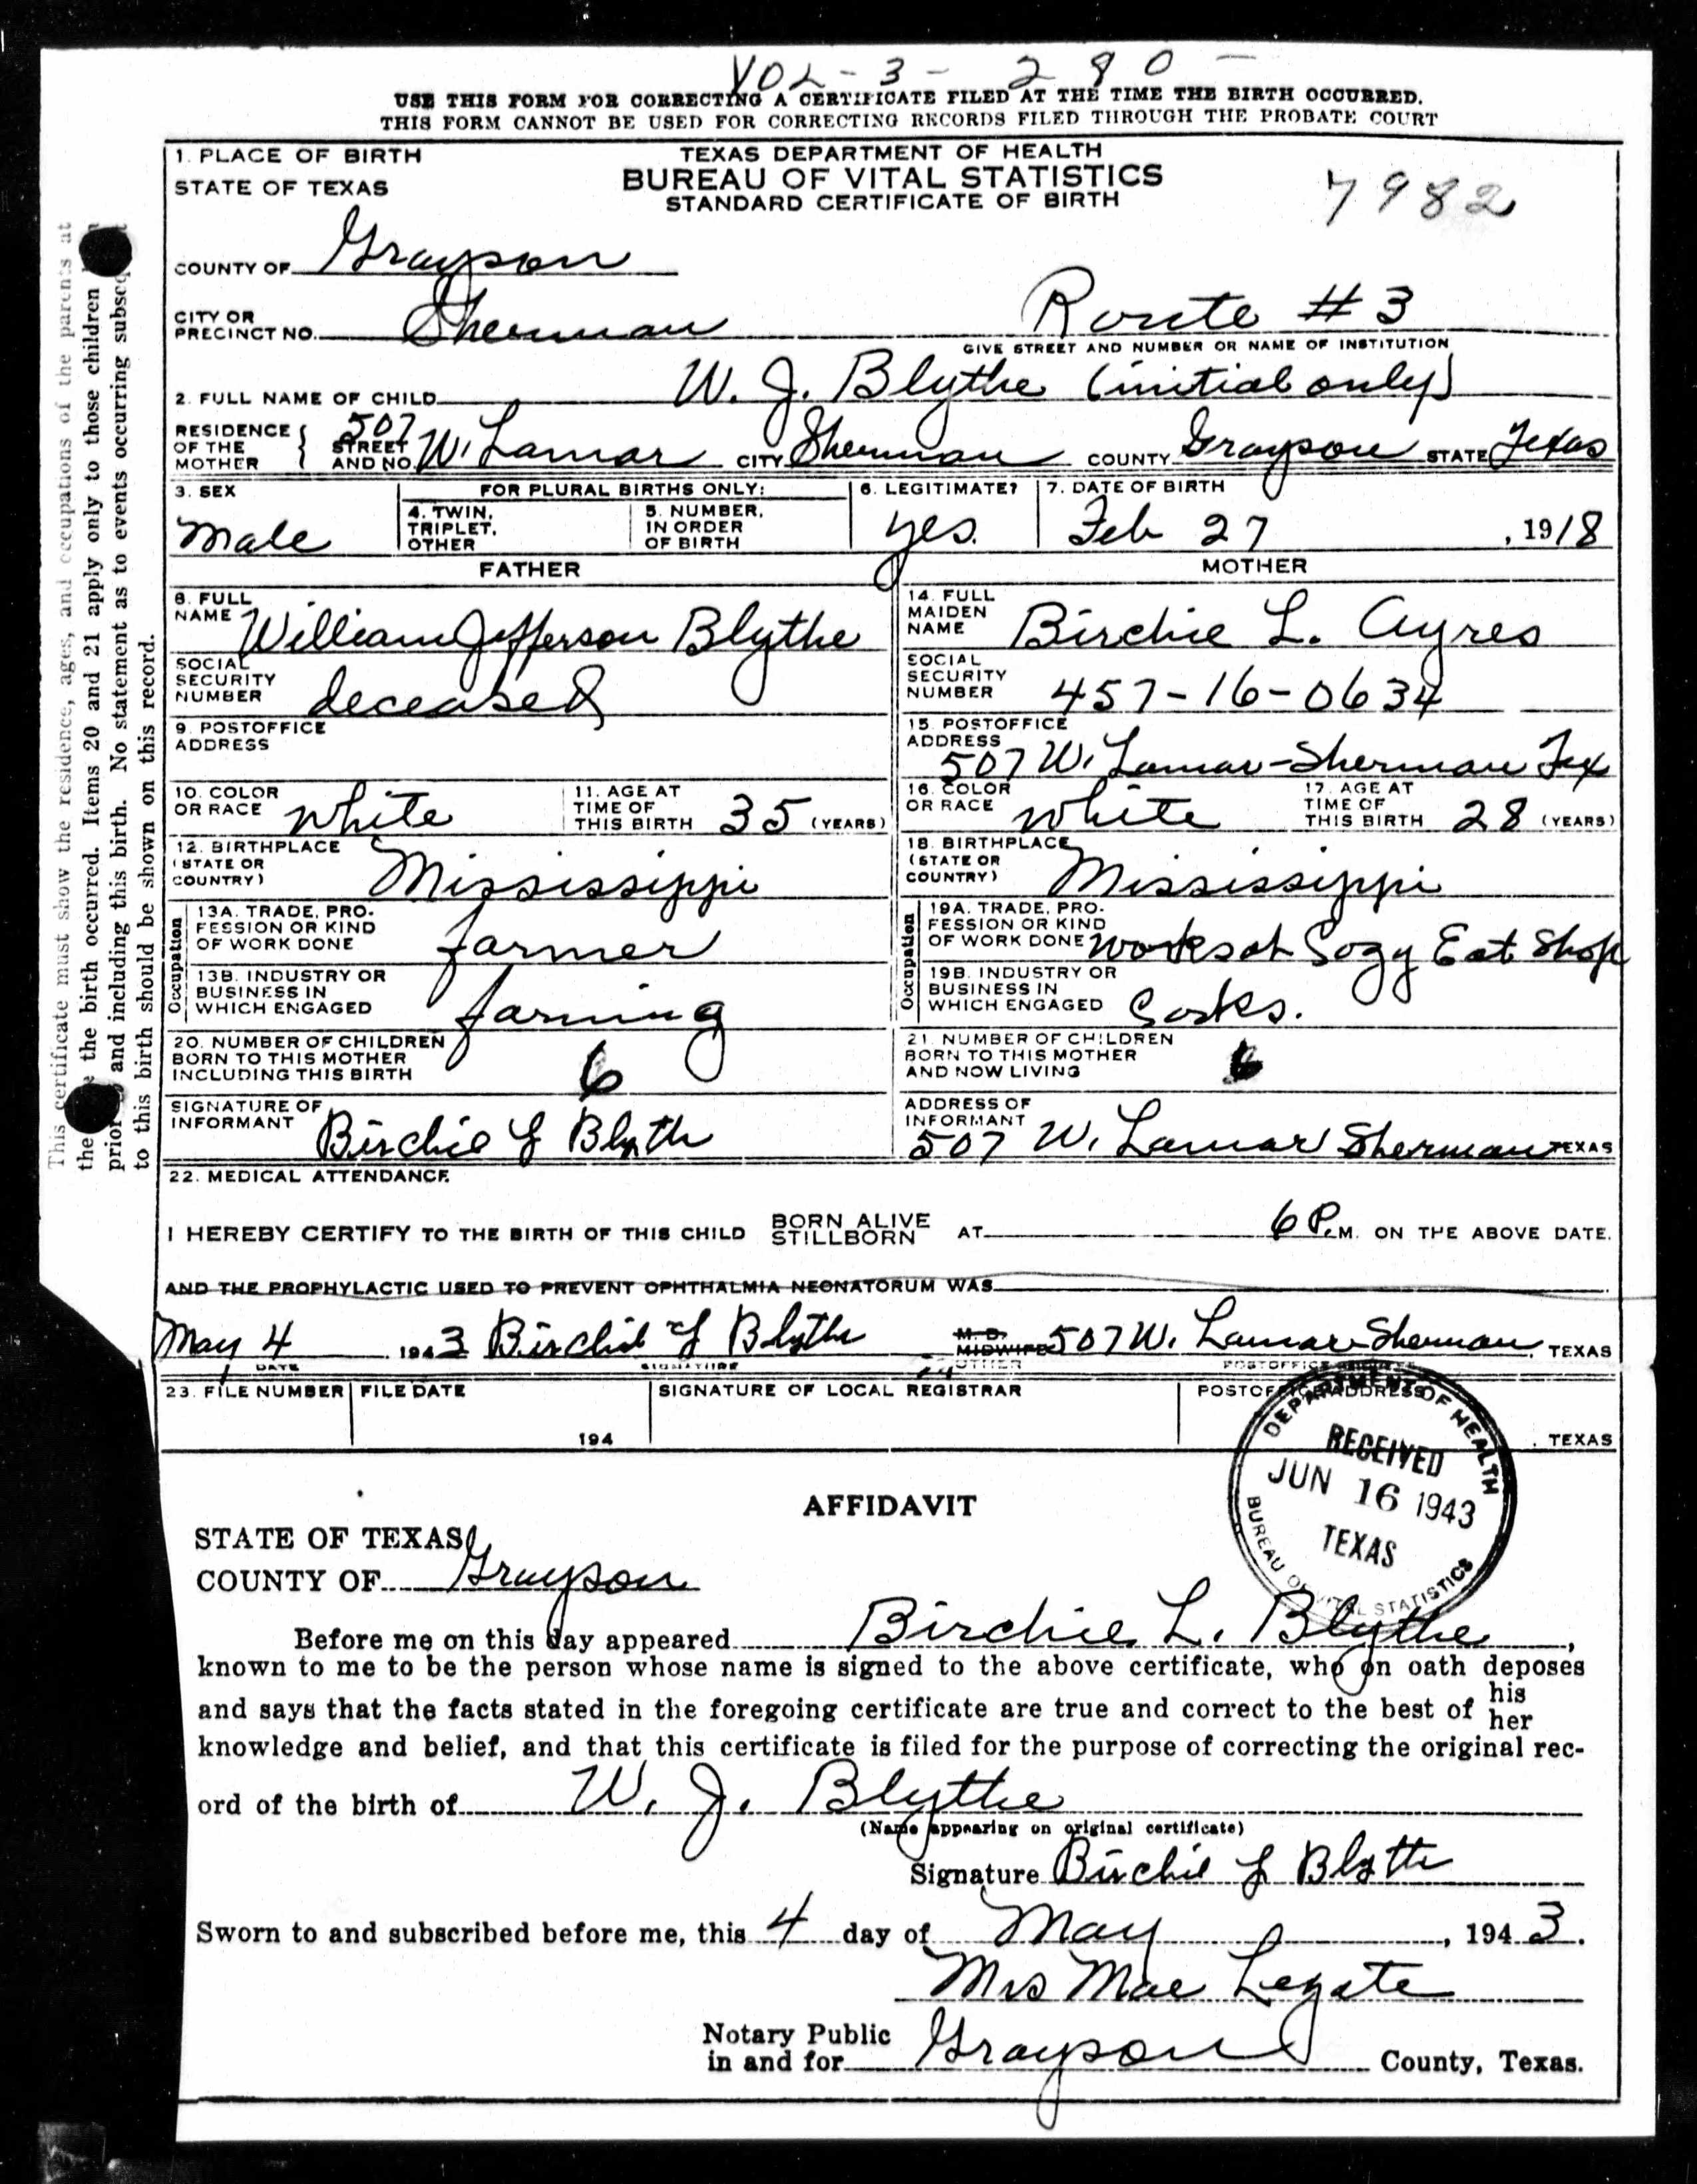 VOL-3- 280-
USE THIS FORM FOR CORRECTING A CERTIFICATE FILED AT THE TIME THE BIRTH OCCURRED.
THIS FORM CANNOT BE USED FOR CORRECTING RECORDS FILED THROUGH THE PROBATE COURT
1. PLACE OF BIRTH
STATE OF TEXAS
TEXAS DEPARTMENT OF HEALTH
BUREAU OF VITAL STATISTICS
STANDARD CERTIFICATE OF BIRTH
7982
COUNTY OF Grayson
CITY OR PRECINCT NO. Sherman Route #3
GIVE STREET AND NUMBER OR NAME OF INSTITUTION
2. FULL NAME OF CHILD W. J. Blythe (initial only)
RESIDENCE OF THE MOTHER { STREET AND NO. 507 W. Lamar CITY Sherman COUNTY Grayson STATE Texas
3. SEX Male
FOR PLURAL BIRTHS ONLY:
4. TWIN, TRIPLET, OTHER
5. NUMBER, IN ORDER OF BIRTH
6. LEGITIMATE? yes.
7. DATE OF BIRTH Feb 27, 1918
FATHER
8. FULL NAME William Jefferson Blythe
SOCIAL SECURITY NUMBER deceased
9. POSTOFFICE ADDRESS
10. COLOR OR RACE white
11. AGE AT TIME OF THIS BIRTH 35 (YEARS)
12. BIRTHPLACE (STATE OR COUNTRY) Mississippi
Occupation
13A. TRADE, PROFESSION OR KIND OF WORK DONE farmer
13B. INDUSTRY OR BUSINESS IN WHICH ENGAGED farming
MOTHER
14. FULL MAIDEN NAME Birchie L. Ayres
SOCIAL SECURITY NUMBER 457-16-0634
15. POSTOFFICE ADDRESS 507 W. Lamar-Sherman Tex
16. COLOR OR RACE white
17. AGE AT TIME OF THIS BIRTH 28 (YEARS)
18. BIRTHPLACE (STATE OR COUNTRY) Mississippi
Occupation
19A. TRADE, PROFESSION OR KIND OF WORK DONE works at Cozy Eat Shop
19B. INDUSTRY OR BUSINESS IN WHICH ENGAGED Cooks.
20. NUMBER OF CHILDREN BORN TO THIS MOTHER INCLUDING THIS BIRTH 6
21. NUMBER OF CHILDREN BORN TO THIS MOTHER AND NOW LIVING 6
SIGNATURE OF INFORMANT Birchie L Blythe
ADDRESS OF INFORMANT 507 W. Lamar Sherman TEXAS
22. MEDICAL ATTENDANCE
I HEREBY CERTIFY TO THE BIRTH OF THIS CHILD BORN ALIVE STILLBORN AT 6 P.M. ON THE ABOVE DATE.
AND THE PROPHYLACTIC USED TO PREVENT OPHTHALMIA NEONATORUM WAS
May 4 1943 Birchie L Blythe M. D. MIDWIFE OTHER 507 W. Lamar Sherman, TEXAS
DATE SIGNATURE POSTOFFICE ADDRESS
23. FILE NUMBER FILE DATE 194 SIGNATURE OF LOCAL REGISTRAR POSTOFFICE ADDRESS , TEXAS
DEPARTMENT OF HEALTH
RECEIVED
JUN 16 1943
TEXAS
BUREAU OF VITAL STATISTICS
AFFIDAVIT
STATE OF TEXAS
COUNTY OF Grayson
Before me on this day appeared Birchie L. Blythe,
known to me to be the person whose name is signed to the above certificate, who on oath deposes
and says that the facts stated in the foregoing certificate are true and correct to the best of his her
knowledge and belief, and that this certificate is filed for the purpose of correcting the original rec-
ord of the birth of W. J. Blythe
(Name appearing on original certificate)
Signature Birchie L Blythe
Sworn to and subscribed before me, this 4 day of May, 1943.
Mrs Mae Legate
Notary Public in and for Grayson County, Texas.
This certificate must show the residence, ages, and occupations of the parents at
the the birth occurred. Items 20 and 21 apply only to those children
prior and including this birth. No statement as to events occurring
to this birth should be shown on this record.